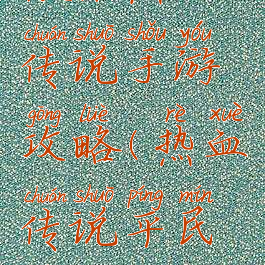 chuán shuō shǒu yóu
传说手游
gōng lüè rè xuè
攻略(热血
chuán shuō píng mín
传说平民